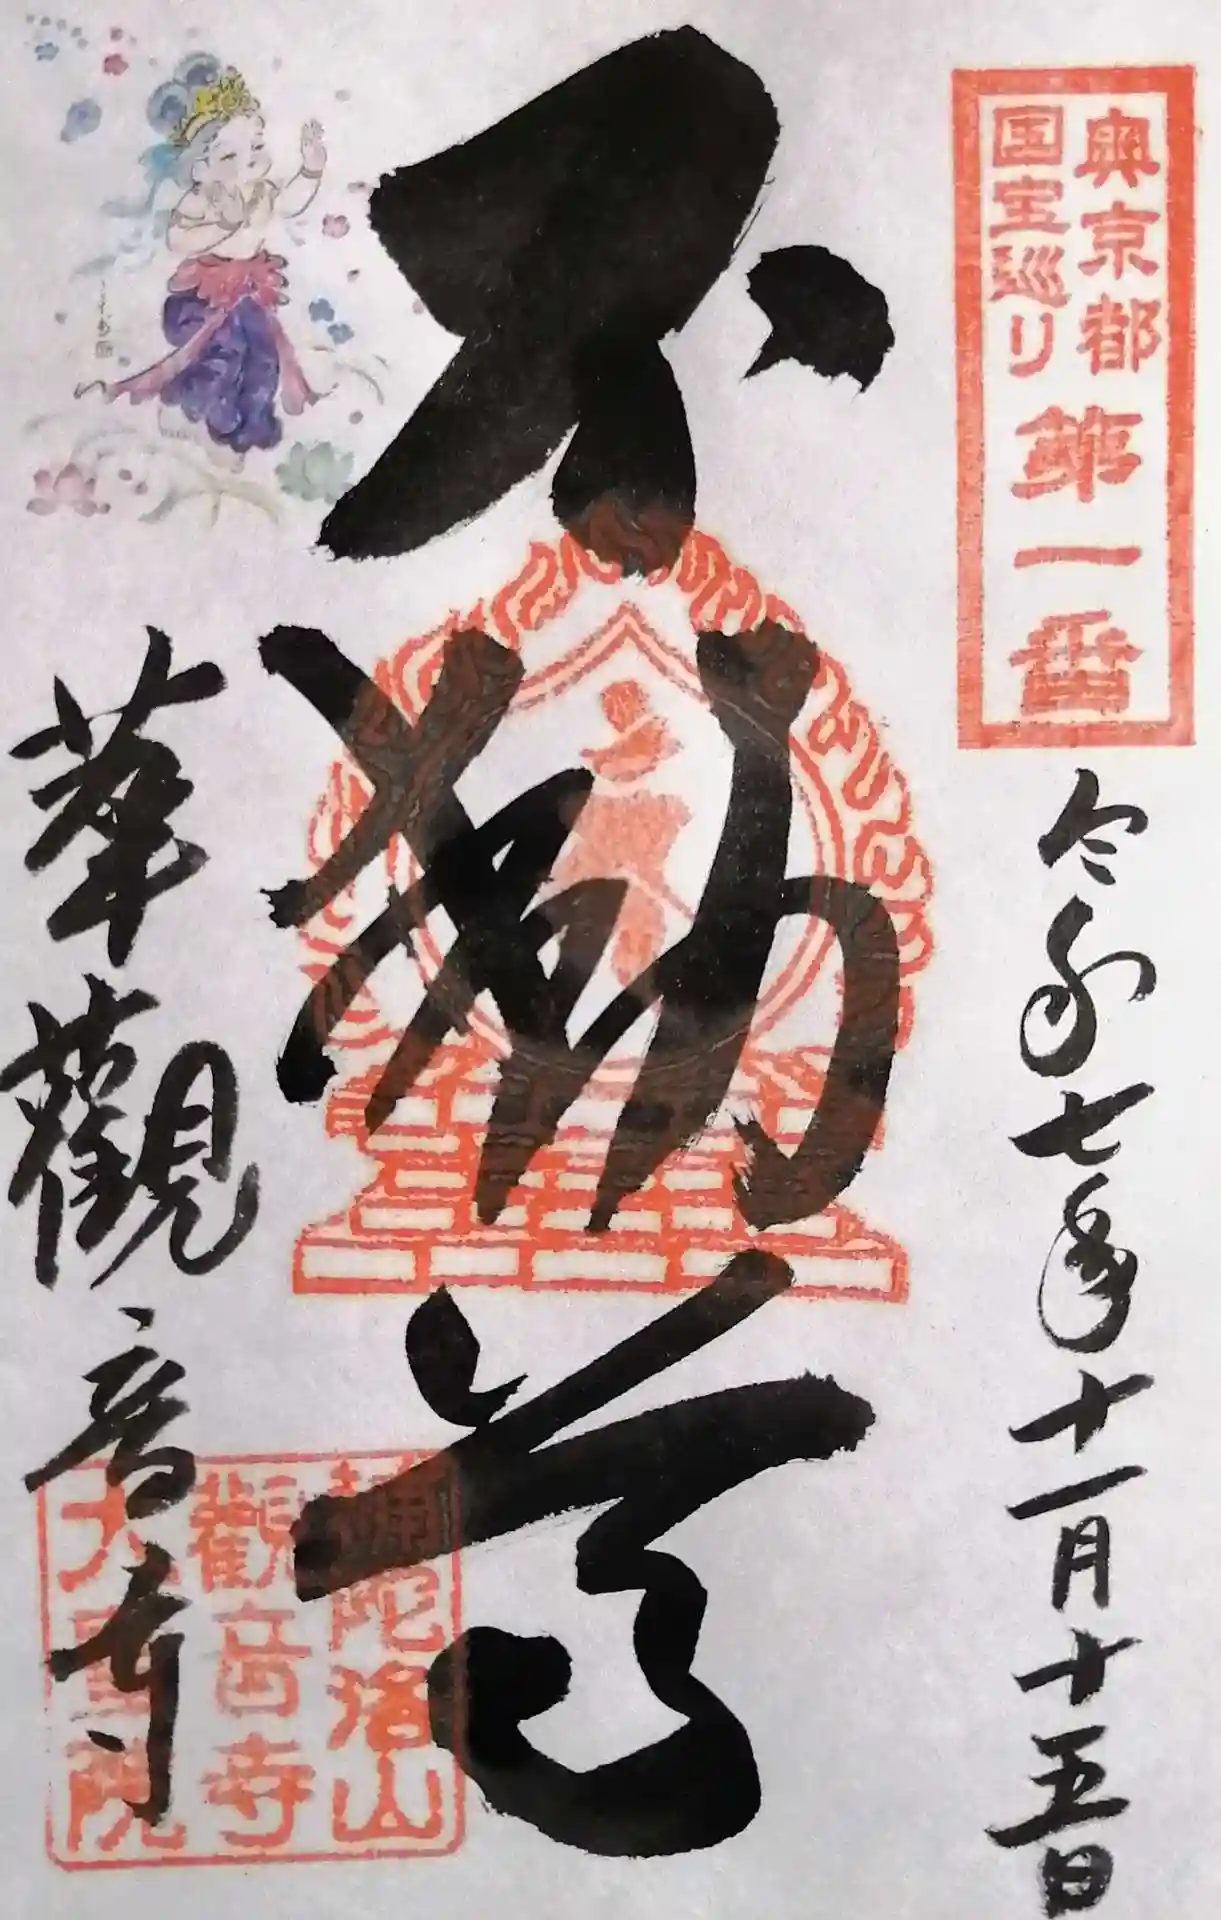 奥京都
国宝巡り
第一番
令和七年十一月十五日
不動尊
華觀音寺
補陀洛山
觀音寺
大聖院